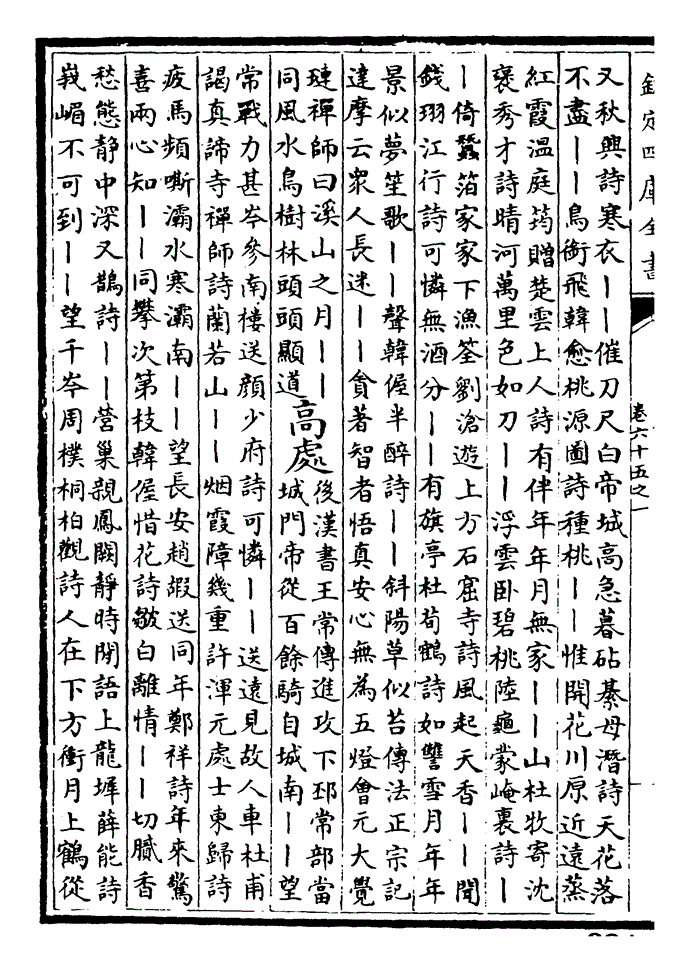 欽定四庫全書
卷六十五之一
又秋興詩寒衣丨丨催刀尺白帝城高急暮砧綦母潛詩天花落
不盡丨丨鳥銜飛韓愈桃源圖詩種桃丨丨惟開花川原近遠蒸
紅霞溫庭筠贈楚雲上人詩有伴年年月無家丨丨山杜牧寄沈
褒秀才詩晴河萬里色如刀丨丨浮雲卧碧桃陸龜蒙崦裏詩丨
丨倚蠶箔家家下漁筌劉滄遊上方石窟寺詩風起天香丨丨聞
錢珝江行詩可憐無酒分丨丨有旗亭杜荀鶴詩如讐雪月年年
景似夢笙歌丨丨聲韓偓半醉詩丨丨斜陽草似苔傳法正宗記
達摩云衆人長迷丨丨貪著智者悟真安心無為五燈會元大覺
璉禪師曰溪山之月丨丨
同風水鳥樹林頭頭顯道
高處
後漢書王常傳進攻下邳常部當
城門帝從百餘騎自城南丨丨望
常戰力甚岑參南樓送顔少府詩可憐丨丨送遠見故人車杜甫
謁真諦寺禪師詩蘭若山丨丨烟霞障幾重許渾元處士東歸詩
疲馬頻嘶灞水寒灞南丨丨望長安趙嘏送同年鄭祥詩年來驚
喜兩心知丨丨同攀次第枝韓偓惜花詩皺白離情丨丨切膩香
愁態靜中深又鵲詩丨丨營巢親鳳闕靜時閒語上龍墀薛能詩
峩嵋不可到丨丨望千岑周樸桐柏觀詩人在下方衝月上鶴從